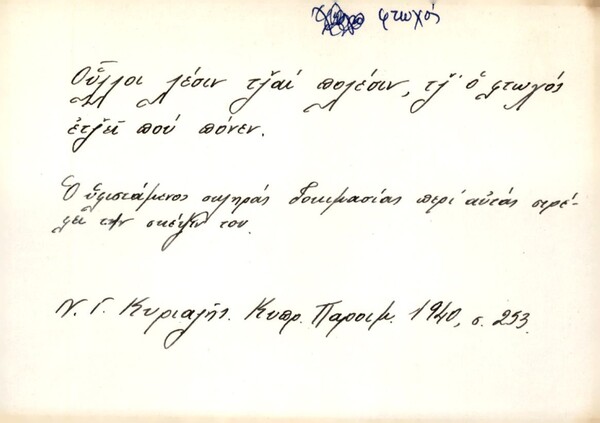 φτωχός
Οὗλλοι λέσιν τζ̆αί πολέσιν, τζ̆' ὁ φτωχός
ἐτζ̆εῖ πού πόνεν.
Ὁ ὑφιστάμενος σκληράς δοκιμασίας περί αὐτάς στρέ-
φει τήν σκέψιν του.
Ν. Γ. Κυριαζῆς. Κυπρ. Παροιμ. 1940, σ. 253.